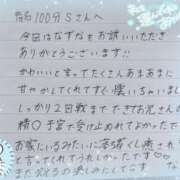 指名100分 Sさんへ
今回はなずなをお誘いいただき
ありがとうございます!!
かわいいと言ってたくさんあまあまに
甘やかしてくれてすぐ
しっかり2回戦まで できてお兄さんの
精 子宮で受け止めれてよかったです
お家にいるみたいに 落ち着くし癒され
と言ってくれてうれしかったです♡
また の楽しみたいです